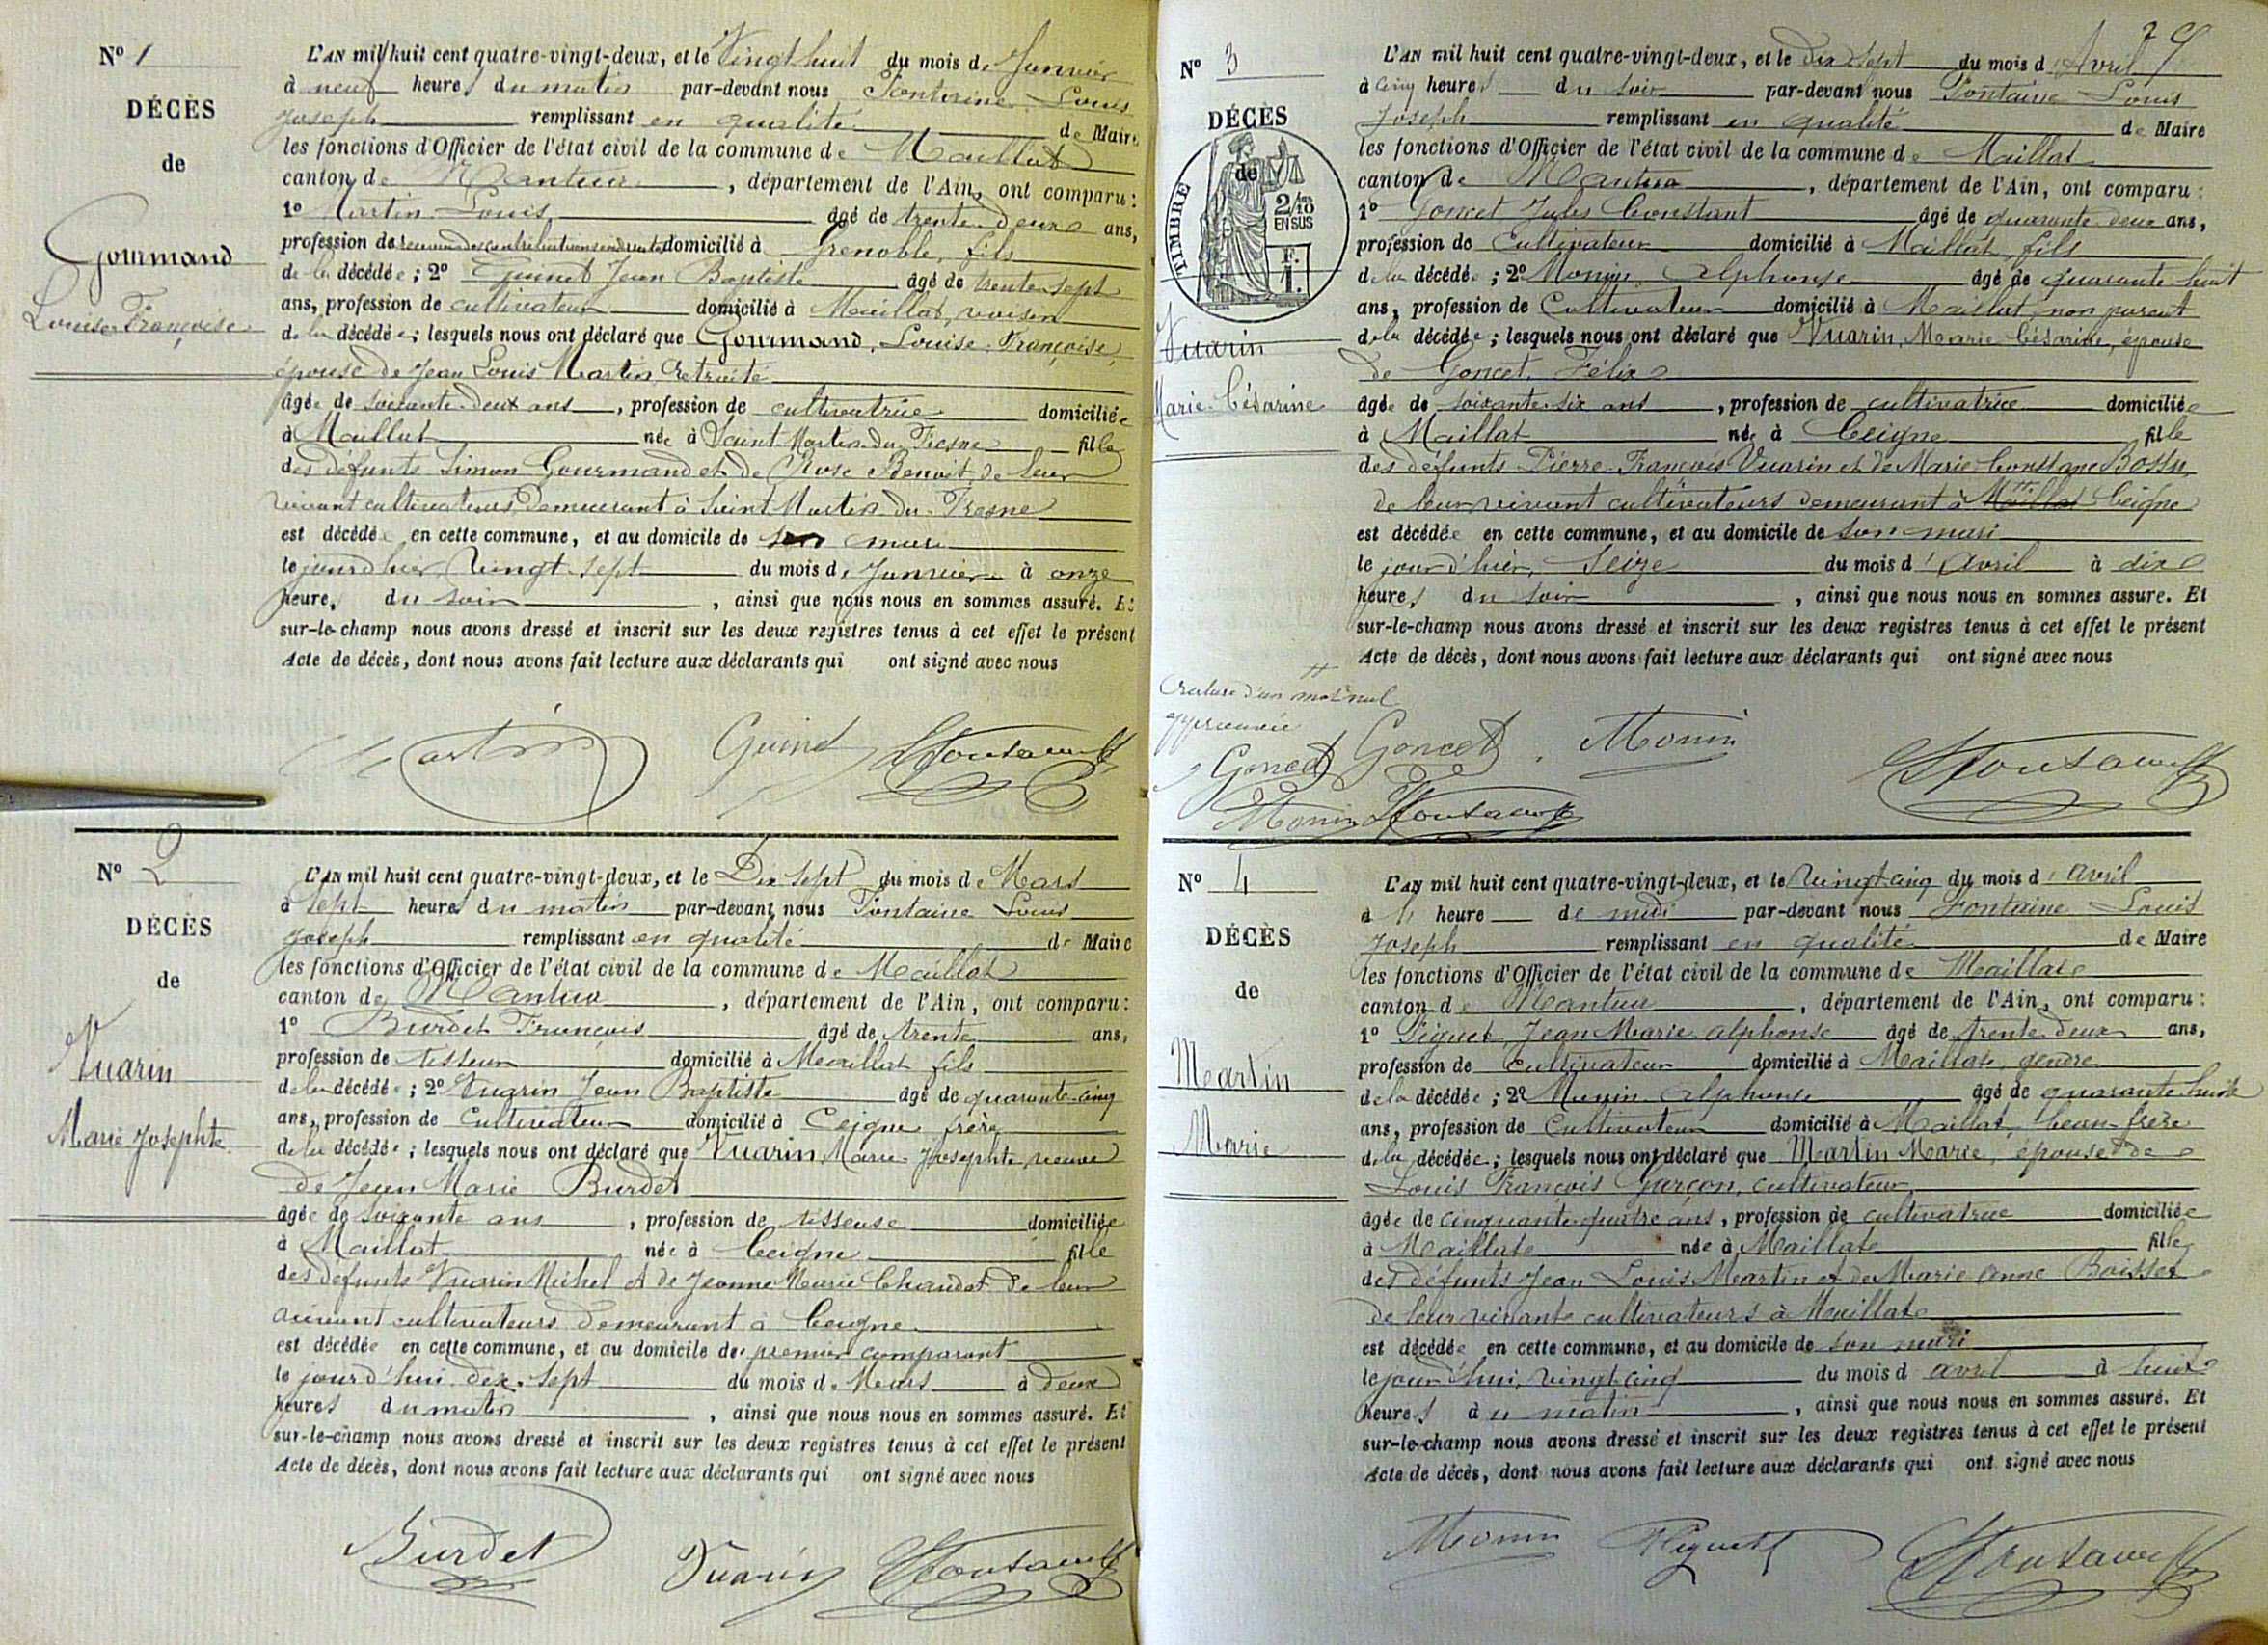 N° 1
DÉCÈS
de
Gourmand
Louise Françoise
L'AN mil huit cent quatre-vingt-deux, et le Vingt huit du mois de Janvier
à neuf heures du matin par-devant nous Fontaine Louis
Joseph remplissant en qualité de Maire
les fonctions d'Officier de l'état civil de la commune de Maillat
canton de Nantua, département de l'Ain, ont comparu :
1° Martin Louis âgé de trente deux ans,
profession de receveur des contributions indirectes domicilié à Grenoble, fils
de la décédée ; 2° Guinet Jean Baptiste âgé de trente sept
ans, profession de cultivateur domicilié à Maillat, voisin
de la décédée ; lesquels nous ont déclaré que Gourmand, Louise Françoise,
épouse de Jean Louis Martin, retraité
âgée de soixante-deux ans, profession de cultivatrice domiciliée
à Maillat née à Saint Martin du Fresne fille
des défunts Simon Gourmand et de Rose Benoit, de leur
vivant cultivateurs demeurant à Saint Martin-du-Fresne
est décédée en cette commune, et au domicile de son mari
le jour d'hier, vingt-sept du mois de Janvier à onze
heures du soir, ainsi que nous nous en sommes assuré. Et
sur-le-champ nous avons dressé et inscrit sur les deux registres tenus à cet effet le présent
Acte de décès, dont nous avons fait lecture aux déclarants qui ont signé avec nous
Martin Guinet Fontaine
N° 2
DÉCÈS
de
Vuarin
Marie Josephte
L'AN mil huit cent quatre-vingt-deux, et le Dix sept du mois de Mars
à sept heures du matin par-devant nous Fontaine Louis
Joseph remplissant en qualité de Maire
les fonctions d'Officier de l'état civil de la commune de Maillat
canton de Nantua, département de l'Ain, ont comparu :
1° Burdet François âgé de trente ans,
profession de tisseur domicilié à Maillat fils
de la décédée ; 2° Vuarin Jean Baptiste âgé de quarante-cinq
ans, profession de Cultivateur domicilié à Ceigne frère
de la décédée ; lesquels nous ont déclaré que Vuarin, Marie Josephte, veuve
de Jean Marie Burdet
âgée de soixante ans, profession de tisseuse domiciliée
à Maillat née à Ceigne fille
des défunts Vuarin Michel et de Jeanne Marie Chaudet de leur
vivant cultivateurs demeurant à Ceigne
est décédée en cette commune, et au domicile du premier comparant
le jour d'hui dix-sept du mois de Mars à deux
heures du matin, ainsi que nous nous en sommes assuré. Et
sur-le-champ nous avons dressé et inscrit sur les deux registres tenus à cet effet le présent
Acte de décès, dont nous avons fait lecture aux déclarants qui ont signé avec nous
Burdet Vuarin Fontaine
N° 3
DÉCÈS
de
TIMBRE
2/10
EN SUS
F.
1.
Vuarin
Marie Césarine
L'AN mil huit cent quatre-vingt-deux, et le dix sept du mois d'Avril
à cinq heures du soir par-devant nous Fontaine Louis
Joseph remplissant en qualité de Maire
les fonctions d'Officier de l'état civil de la commune de Maillat
canton de Nantua, département de l'Ain, ont comparu :
1° Goncet Jules Constant âgé de quarante deux ans,
profession de Cultivateur domicilié à Maillat, fils
de la décédée ; 2° Monin Alphonse âgé de quarante huit
ans, profession de Cultivateur domicilié à Maillat, non parent
de la décédée ; lesquels nous ont déclaré que Vuarin, Marie Césarine, épouse
de Goncet Félix
âgée de soixante-six ans, profession de cultivatrice domiciliée
à Maillat née à Ceigne fille
des défunts Pierre François Vuarin et de Marie Constance Bossu,
de leur vivant cultivateurs demeurant à Maillat Ceigne
est décédée en cette commune, et au domicile de son mari
le jour d'hier, Seize du mois d'Avril à dix
heures du soir, ainsi que nous nous en sommes assuré. Et
sur-le-champ nous avons dressé et inscrit sur les deux registres tenus à cet effet le présent
Acte de décès, dont nous avons fait lecture aux déclarants qui ont signé avec nous
Rature d'un mot nul
approuvée
Goncet Goncet Monin Fontaine
Monin Fontaine
N° 4
DÉCÈS
de
Martin
Marie
L'AN mil huit cent quatre-vingt-deux, et le Vingt cinq du mois d'avril
à heure de midi par-devant nous Fontaine Louis
Joseph remplissant en qualité de Maire
les fonctions d'Officier de l'état civil de la commune de Maillat
canton de Nantua, département de l'Ain, ont comparu :
1° Piguet Jean Marie Alphonse âgé de trente deux ans,
profession de Cultivateur domicilié à Maillat, gendre
de la décédée ; 2° Monin Alphonse âgé de quarante huit
ans, profession de Cultivateur domicilié à Maillat, beau-frère
de la décédée ; lesquels nous ont déclaré que Martin Marie, épouse de
Louis François Garçon, cultivateur
âgée de cinquante quatre ans, profession de cultivatrice domiciliée
à Maillat née à Maillat fille
des défunts Jean Louis Martin et de Marie Anne Boisset
de leur vivant cultivateurs à Maillat
est décédée en cette commune, et au domicile de son mari
le jour d'hui, vingt cinq du mois d'avril à huit
heures du matin, ainsi que nous nous en sommes assuré. Et
sur-le-champ nous avons dressé et inscrit sur les deux registres tenus à cet effet le présent
Acte de décès, dont nous avons fait lecture aux déclarants qui ont signé avec nous
Monin Piguet Fontaine